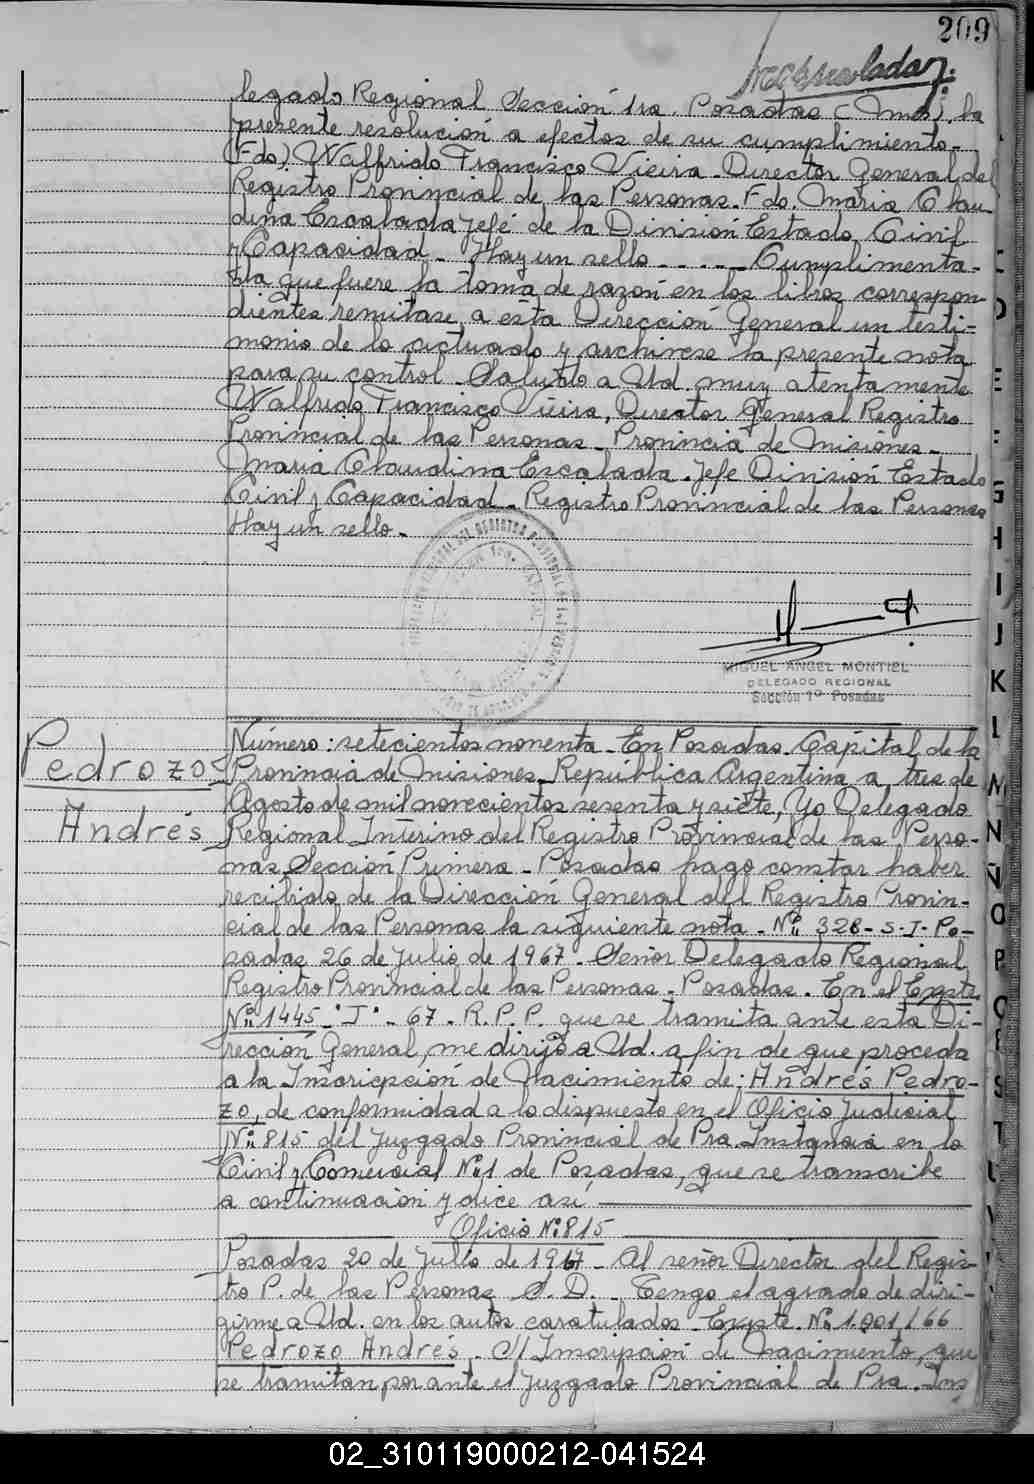 209
legado Regional Sección 1ra. Posadas (Mnes). la
presente resolución a efectos de su cumplimiento.
(Fdo) Walfrido Francisco Vieira. Director General del
Registro Provincial de las Personas. Fdo. María Clau
dina Escalada Jefe de la División Estado Civil
y Capacidad. Hay un sello ------ Cumplimenta-
da que fuere la toma de razón en los libros correspon
dientes remitase a esta Dirección General un testi-
monio de lo actuado y archivese la presente nota
para su control. Saludo a Ud. muy atentamente
Walfrido Francisco Vieira, Director General Registro
Provincial de las Personas - Provincia de Misiones.
María Claudina Escalada. Jefe División Estado
Civil y Capacidad. Registro Provincial de las Personas
Hay un sello.
MIGUEL ANGEL MONTIEL
DELEGADO REGIONAL
Sección 1º Posadas
Pedrozo
Andrés
Número: setecientos noventa. En Posadas Capital de la
Provincia de Misiones, República Argentina a tres de
Agosto de mil novecientos sesenta y siete, Yo Delegado
Regional Interino del Registro Provincial de las Perso-
nas Sección Primera - Posadas hago constar haber
recibido de la Dirección General del Registro Provin-
cial de las Personas la siguiente nota. Nº 328-S.I. Po-
sadas 26 de Julio de 1967. Señor Delegado Regional
Registro Provincial de las Personas. Posadas. En el Expte
Nº 1445 "J" - 67. R.P.P. que se tramita ante esta Di-
rección General, me dirijo a Ud. a fin de que proceda
a la Inscripción de Nacimiento de: Andrés Pedro-
zo, de conformidad a lo dispuesto en el Oficio Judicial
Nº 815 del Juzgado Provincial de Pra Instancia en lo
Civil y Comercial Nº 1 de Posadas, que se transcribe
a continuación y dice así
Oficio Nº 815
Posadas 20 de Julio de 1967. Al señor Director del Regis-
tro P. de las Personas S. D. - Tengo el agrado de diri-
girme a Ud. en los autos caratulados. Expte. Nº 1.001/66
Pedrozo Andrés. S/ Inscripción de Nacimiento, que
se tramitan por ante el Juzgado Provincial de Pra. Ins
G
H
I
J
K
L
M
N
Ñ
O
P
S
T
02_310119000212-041524